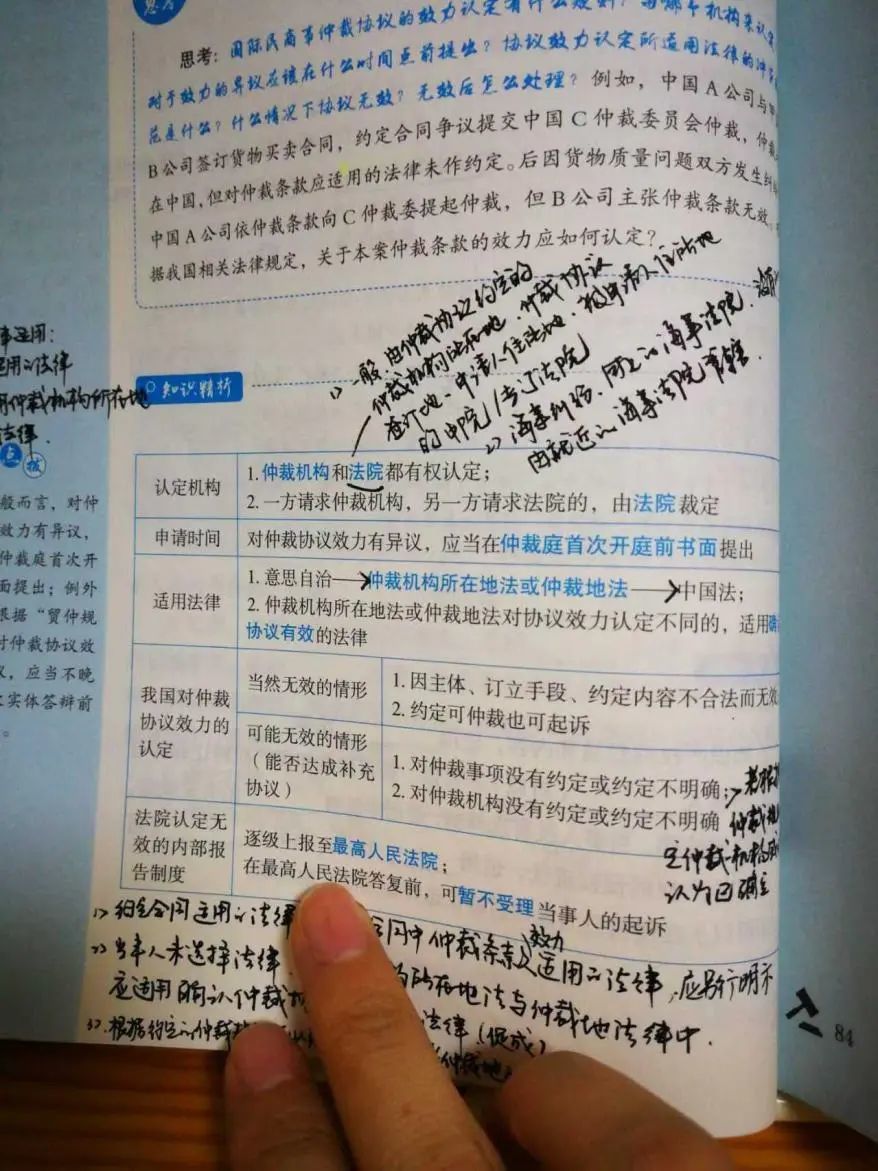 思考：国际民商事仲裁协议的效力认定有什么规则？由哪个机构来认定
对于效力的异议应该在什么时间点前提出？协议效力认定所适用法律的冲突
范是什么？什么情况下协议无效？无效后怎么处理？例如，中国A公司与甲
B公司签订货物买卖合同，约定合同争议提交中国C仲裁委员会仲裁，仲裁
在中国，但对仲裁条款应适用的法律未作约定。后因货物质量问题双方发生纠
中国A公司依仲裁条款向C仲裁委提起仲裁，但B公司主张仲裁条款无效。
据我国相关法律规定，关于本案仲裁条款的效力应如何认定？
1）一般：由仲裁协议约定的
仲裁机构所在地、仲裁协议
签订地、申请人住所地、被申请人住所地
的中院/专门法院
2）海事纠纷
由就近的海事法院管辖.
法律
用仲裁机构所在地
法律.
知识精析
点拨
般而言，对仲
效力有异议，
仲裁庭首次开
面提出；例外
根据“贸仲规
对仲裁协议效
议，应当不晚
实体答辩前
。
认定机构
1.仲裁机构和法院都有权认定；
2.一方请求仲裁机构，另一方请求法院的，由法院裁定
申请时间
对仲裁协议效力有异议，应当在仲裁庭首次开庭前书面提出
适用法律
1.意思自治→仲裁机构所在地法或仲裁地法→中国法；
2.仲裁机构所在地法或仲裁地法对协议效力认定不同的，适用确
协议有效的法律
我国对仲裁
协议效力的
认定
当然无效的情形
1.因主体、订立手段、约定内容不合法而无效
2.约定可仲裁也可起诉
可能无效的情形
（能否达成补充
协议）
1.对仲裁事项没有约定或约定不明确；
2.对仲裁机构没有约定或约定不明确
法院认定无
效的内部报
告制度
逐级上报至最高人民法院；
在最高人民法院答复前，可暂不受理当事人的起诉
1）约定合同适用的法律
合同中仲裁条款效力适用的法律，应另行明示
2）当事人未选择法律
所在地法与仲裁地法律中.
应适用确认仲裁
法律（促成）
3）根据约定的仲裁
84